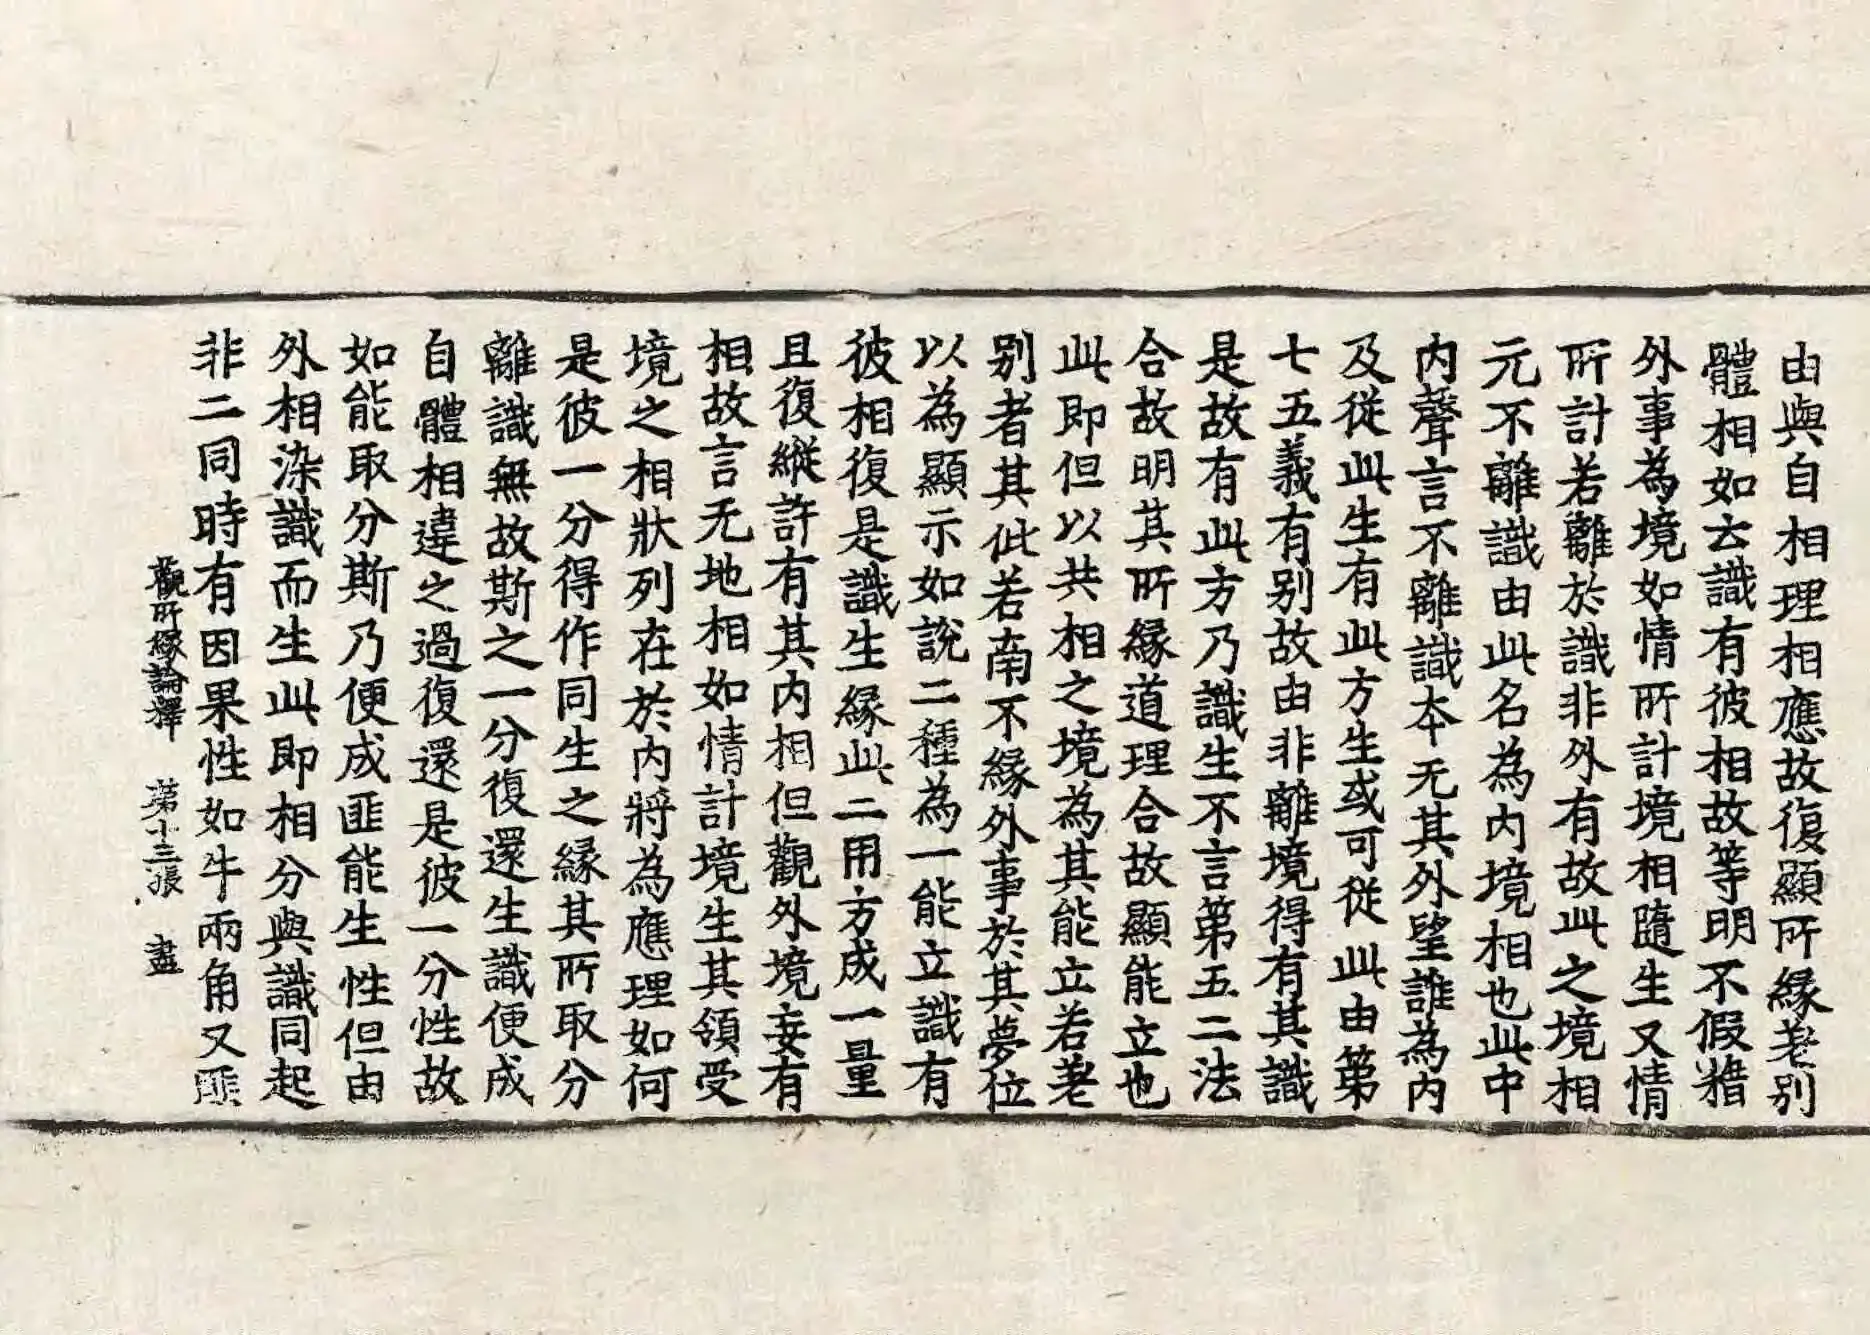 由與自相理相應故復顯所緣差別
體相如去識有彼相故等明不假
外事為境如情所計境相隨生又情
所計若離於識非外有故此之境相
元不離識由此名為內境相也此中
內聲言不離識本无其外望誰為內
及從此生有此方生或可從此由第
七五義有別故由非離境得有其識
是故有此方乃識生不言第五二法
合故明其所緣道理合故顯能立也
此即但以共相之境為其能立若差
別者其此若南不緣外事於其夢位
以為顯示如說二種為一能立識有
彼相復是識生緣此二用方成一量
且復縱許有其內相但觀外境妄有
相故言无地相如情計境生其領受
境之相狀列在於內將為應理如何
是彼一分得作同生之緣其所取分
離識無故斯之一分復還生識便成
自體相違之過復還是彼一分性故
如能取分斯乃便成匪能生性但由
外相染識而生此即相分與識同起
非二同時有因果性如牛兩角又
觀所緣論釋 第十三張 盡